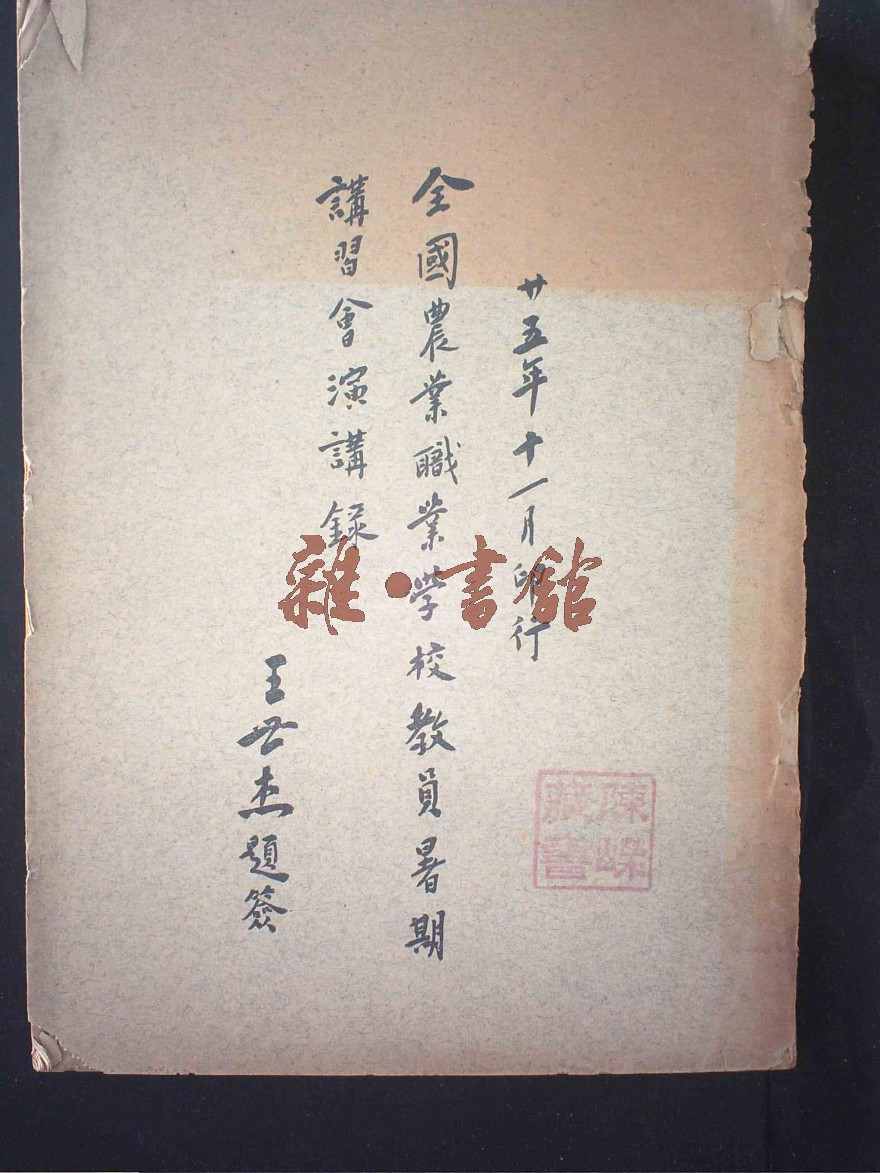 廿五年十一月印行
全國農業職業學校教員暑期
講習會演講錄
王世杰題簽
陳嶸
藏書
雜·書館